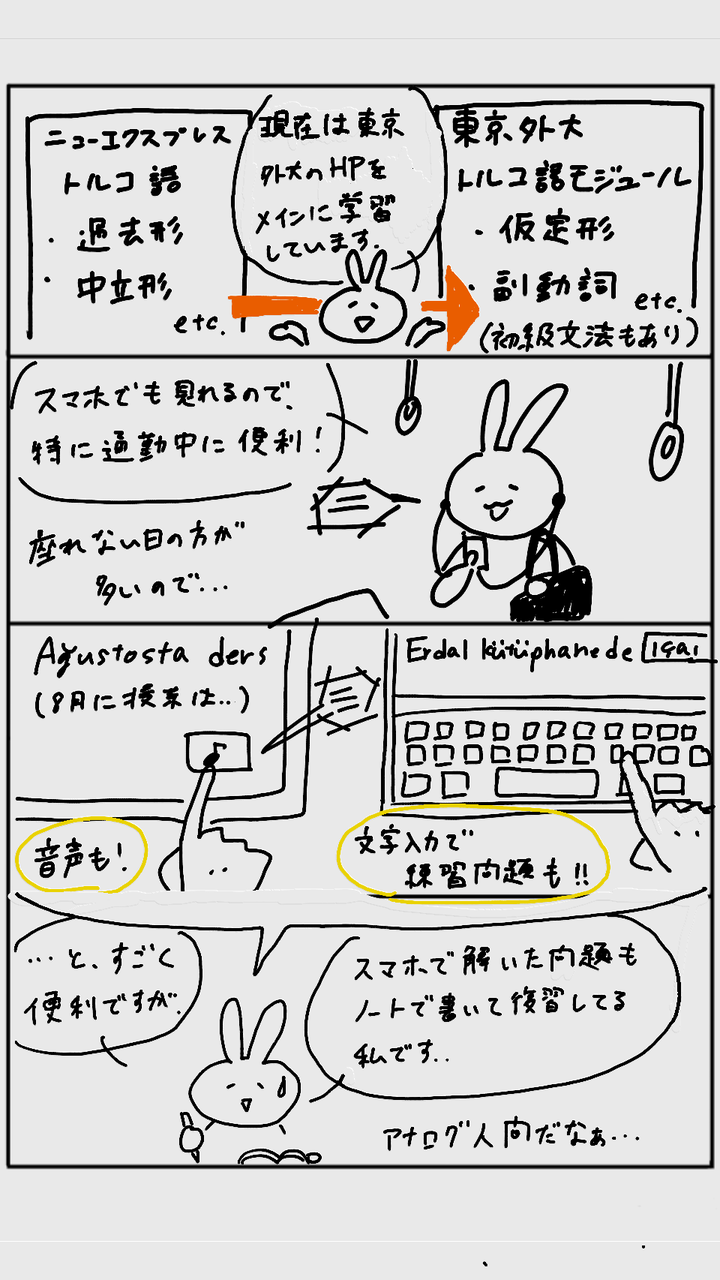 ニューエクスプレス
トルコ語
・過去形
・中立形
etc.
現在は東京
外大のHPを
メインに学習
しています。
東京外大
トルコ語モジュール
・仮定形
・副動詞
etc.
(初級文法もあり)
スマホでも見れるので、
特に通勤中に便利!
座れない日の方が
多いので…
Ağustosta ders
(8月に授業は..)
音声も!
Erdal kütüphanede
文字入力で
練習問題も!!
…と、すごく
便利ですが、
スマホで解いた問題も
ノートで書いて復習してる
私です..
アナログ人間だなぁ…